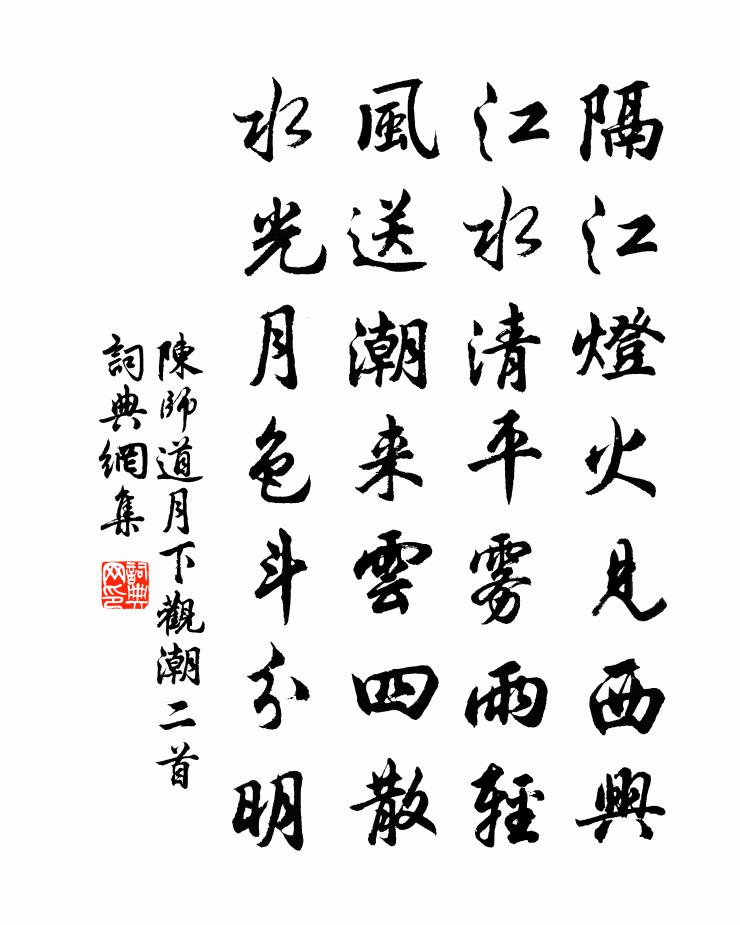 隔江燈火見西興
江水清平雾雨輕
風送潮来雲四散
水光月色斗分明
陳師道月下觀潮二首
詞典網集
詞典网印